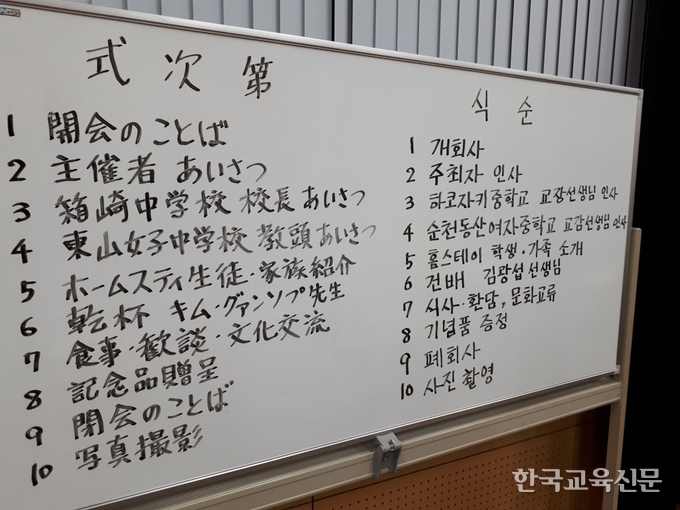 式次第
1 開会のことば
2 主催者 あいさつ
3 箱崎中学校 校長 あいさつ
4 東山女子中学校 教頭 あいさつ
5 ホームスティ生徒・家族紹介
6 乾杯 キム・グァンソプ先生
7 食事・歓談・文化交流
8 記念品贈呈
9 閉会のことば
10 写真撮影
식 순
1 개회사
2 주최자 인사
3 하코자키중학교 교장선생님 인사
4 순천동산여자중학교 교감선생님 인사
5 홈스테이 학생・가족 소개
6 건배 김광섭 선생님
7 식사・환담, 문화교류
8 기념품 증정
9 폐회사
10 사진 촬영
한국교육신문